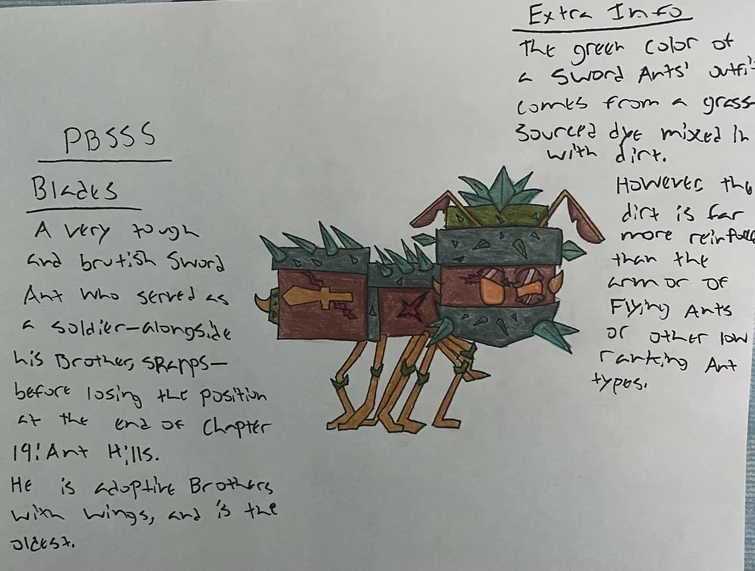 PBSSS
Blades
A very tough
and brutish Sword
Ant who served as
a soldier-alongside
his Brother, SRapps-
before losing the position
at the end of Chapter
19: Ant Hills.
He is adoptive Brothers
with Wings, and is the
oldest.
Extra Info
The green color of
a Sword Ants' outfi
comes from a grass
sourced dye mixed in
with dirt.
However the
dirt is far
more reinfo
than the
armor of
Flying Ants
or other low
ranking Ant
types.